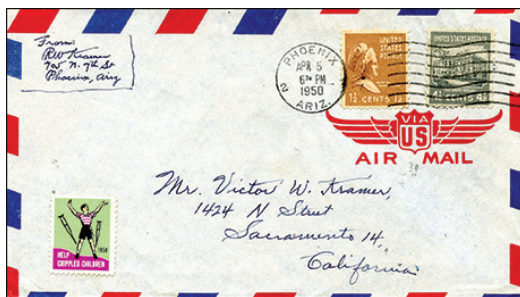 From:
RW Kramer
705 N. 9th St
Phoenix, Ariz
PHOENIX
APR 5
6 PM
1950
2
ARIZ.
UNITED
STATES
POSTAGE
1½ CENTS 1½
UNITED STATES POSTAGE
CENTS 4½
VIA
US
AIR MAIL
Mr. Victor W. Kramer,
1424 N Street
Sacramento 14,
California
1950
HELP
CRIPPLED CHILDREN